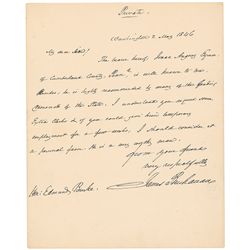 Private
Washington 2 May 1846
My dear Sir!
The bearer hereof, Isaac
of Cumberland County, Penn. is well known to me.
he is highly recommended by many of the
Democrats of the State. I understand you require some
Extra Clerks & if you could give him temporary
employment for a few weeks, I should consider it
a personal favor. He is a very worthy man.
from your friend
very respectfully
James Buchanan
Hon: Edmund Burke.